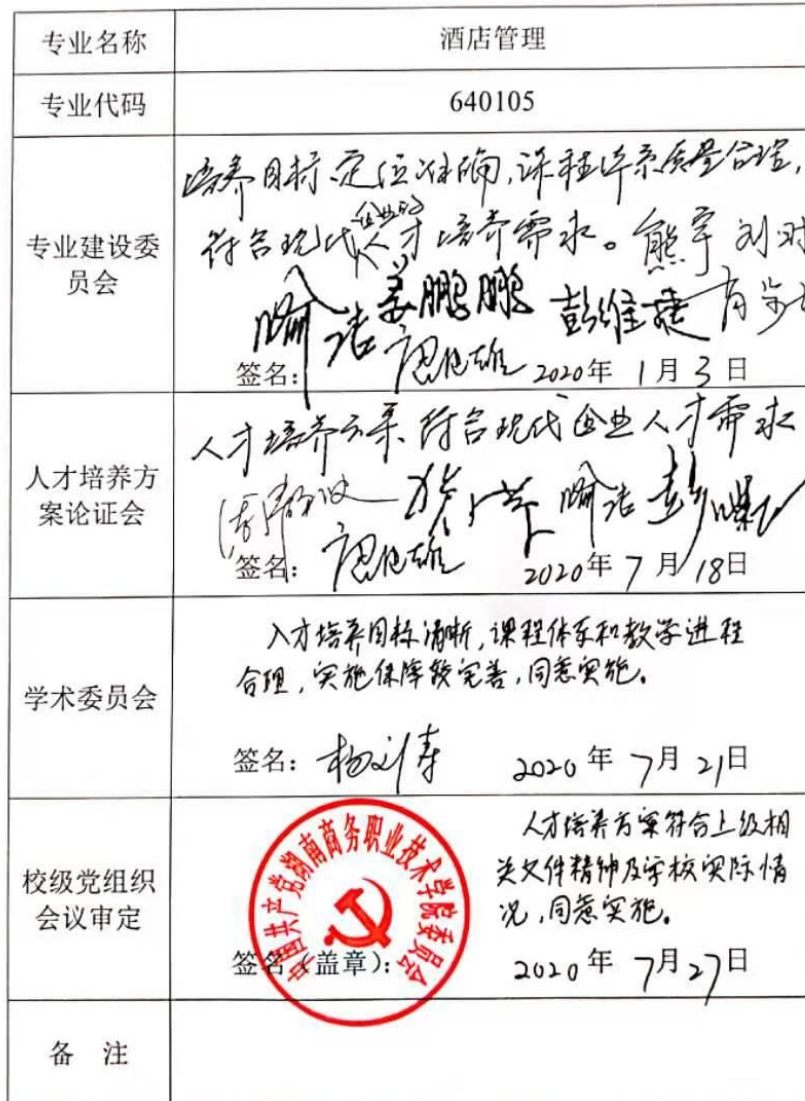 专业名称
酒店管理
专业代码
640105
专业建设委
员会
培养目标定位准确,课程体系质量合理,
企业的
符合现代人才培养需求。熊宇 刘
喻洁 姜鹏鹏 彭维捷
签名: 2020年 1月 3日
人才培养方
案论证会
人才培养方案符合现代企业人才需求
喻洁 彭
签名: 2020年 7月 18日
学术委员会
人才培养目标清晰,课程体系和教学进程
合理,实施保障较完善,同意实施。
签名: 杨 2020年 7月 21日
校级党组织
会议审定
中国共产党湖南商务职业技术学院委员会
人才培养方案符合上级相
关文件精神及学校实际情
况,同意实施。
签名(盖章): 2020年 7月 27日
备 注